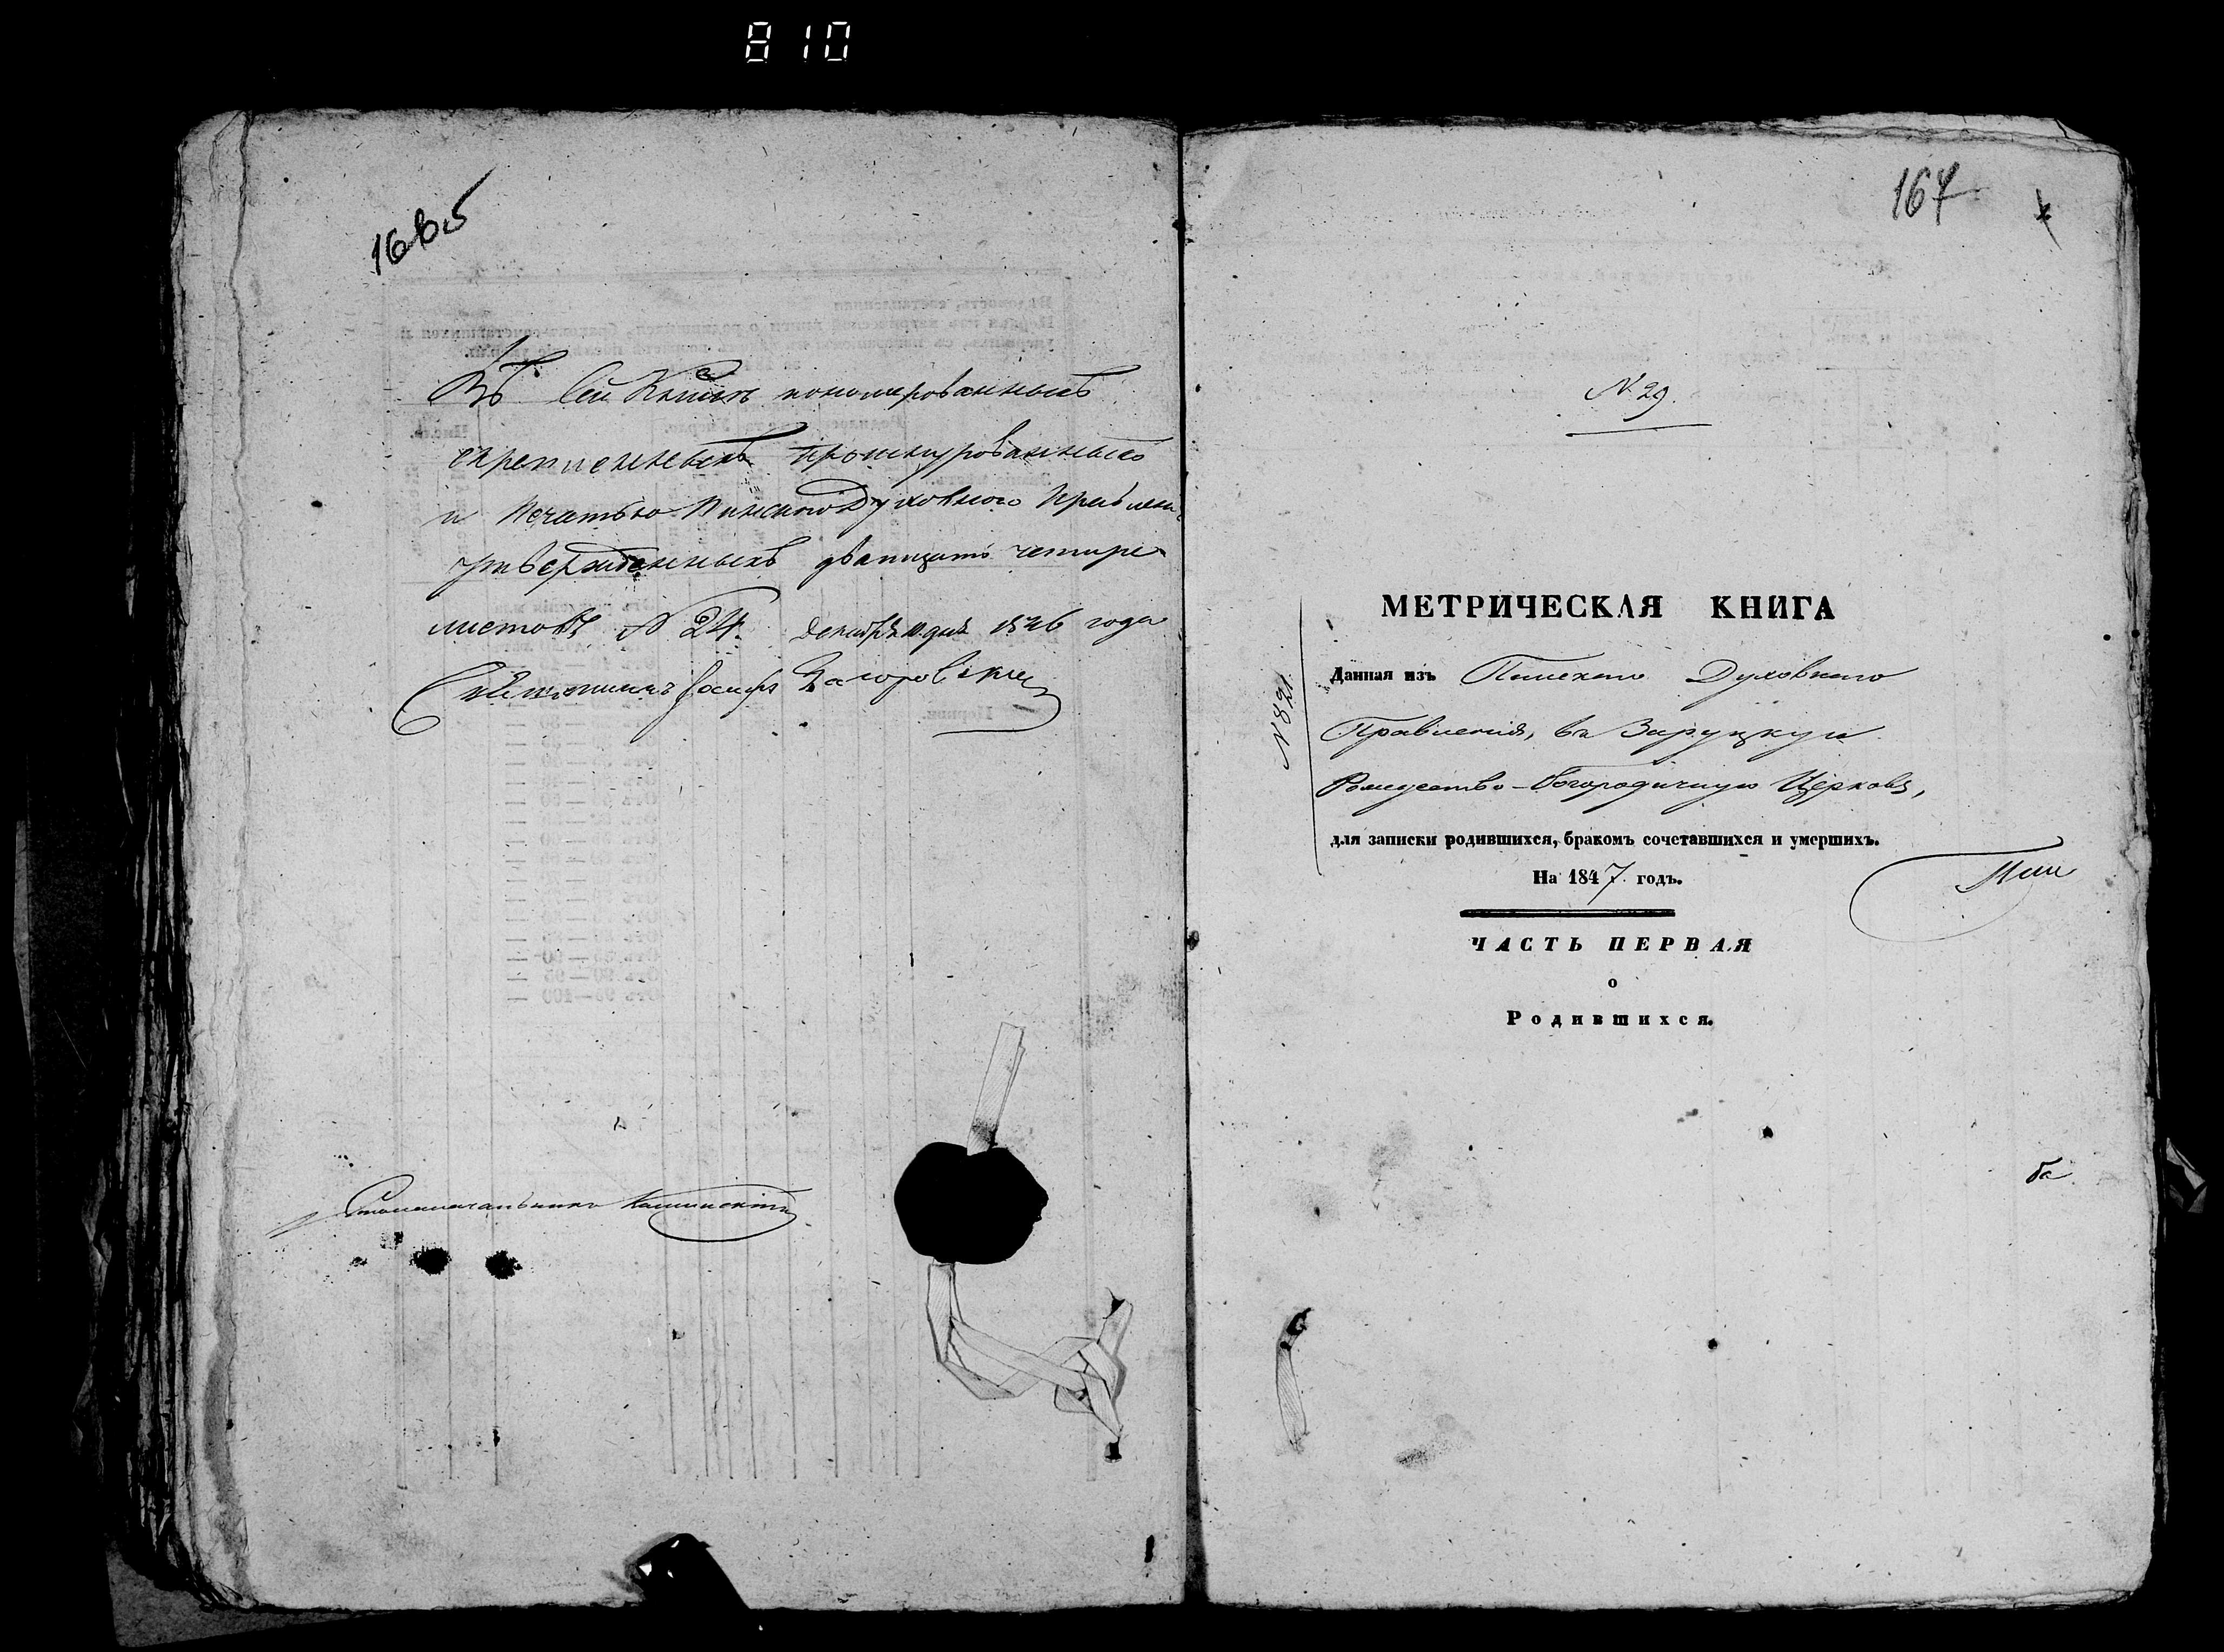 810
166об
Въ сей Книгѣ пономерованныхъ
скрепленныхъ прошнурованныхъ
и Печатью Пинскаго Духовнаго Правлен.
утвержденныхъ дватцать четыре
листовъ № 24. Декабря 10 дня 1846 года
Священникъ Іосифъ Загоровскій
Столоначальникъ
167
№ 29.
МЕТРИЧЕСКАЯ КНИГА
№ 821.
Данная изъ Пинскаго Духовнаго
Правленія, въ Заруцкую
Рождество-Богородичную Церковь,
для записки родившихся, бракомъ сочетавшихся и умершихъ.
На 1847. годъ.
Пин
ЧАСТЬ ПЕРВАЯ
о
Родившихся.